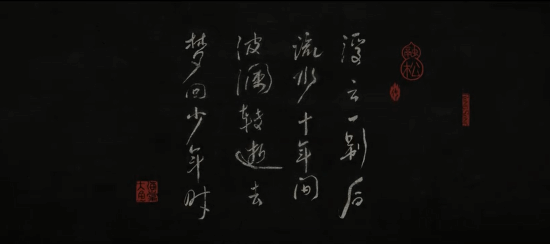 浮云一别后
流水十年间
波澜转逝去
梦回少年时